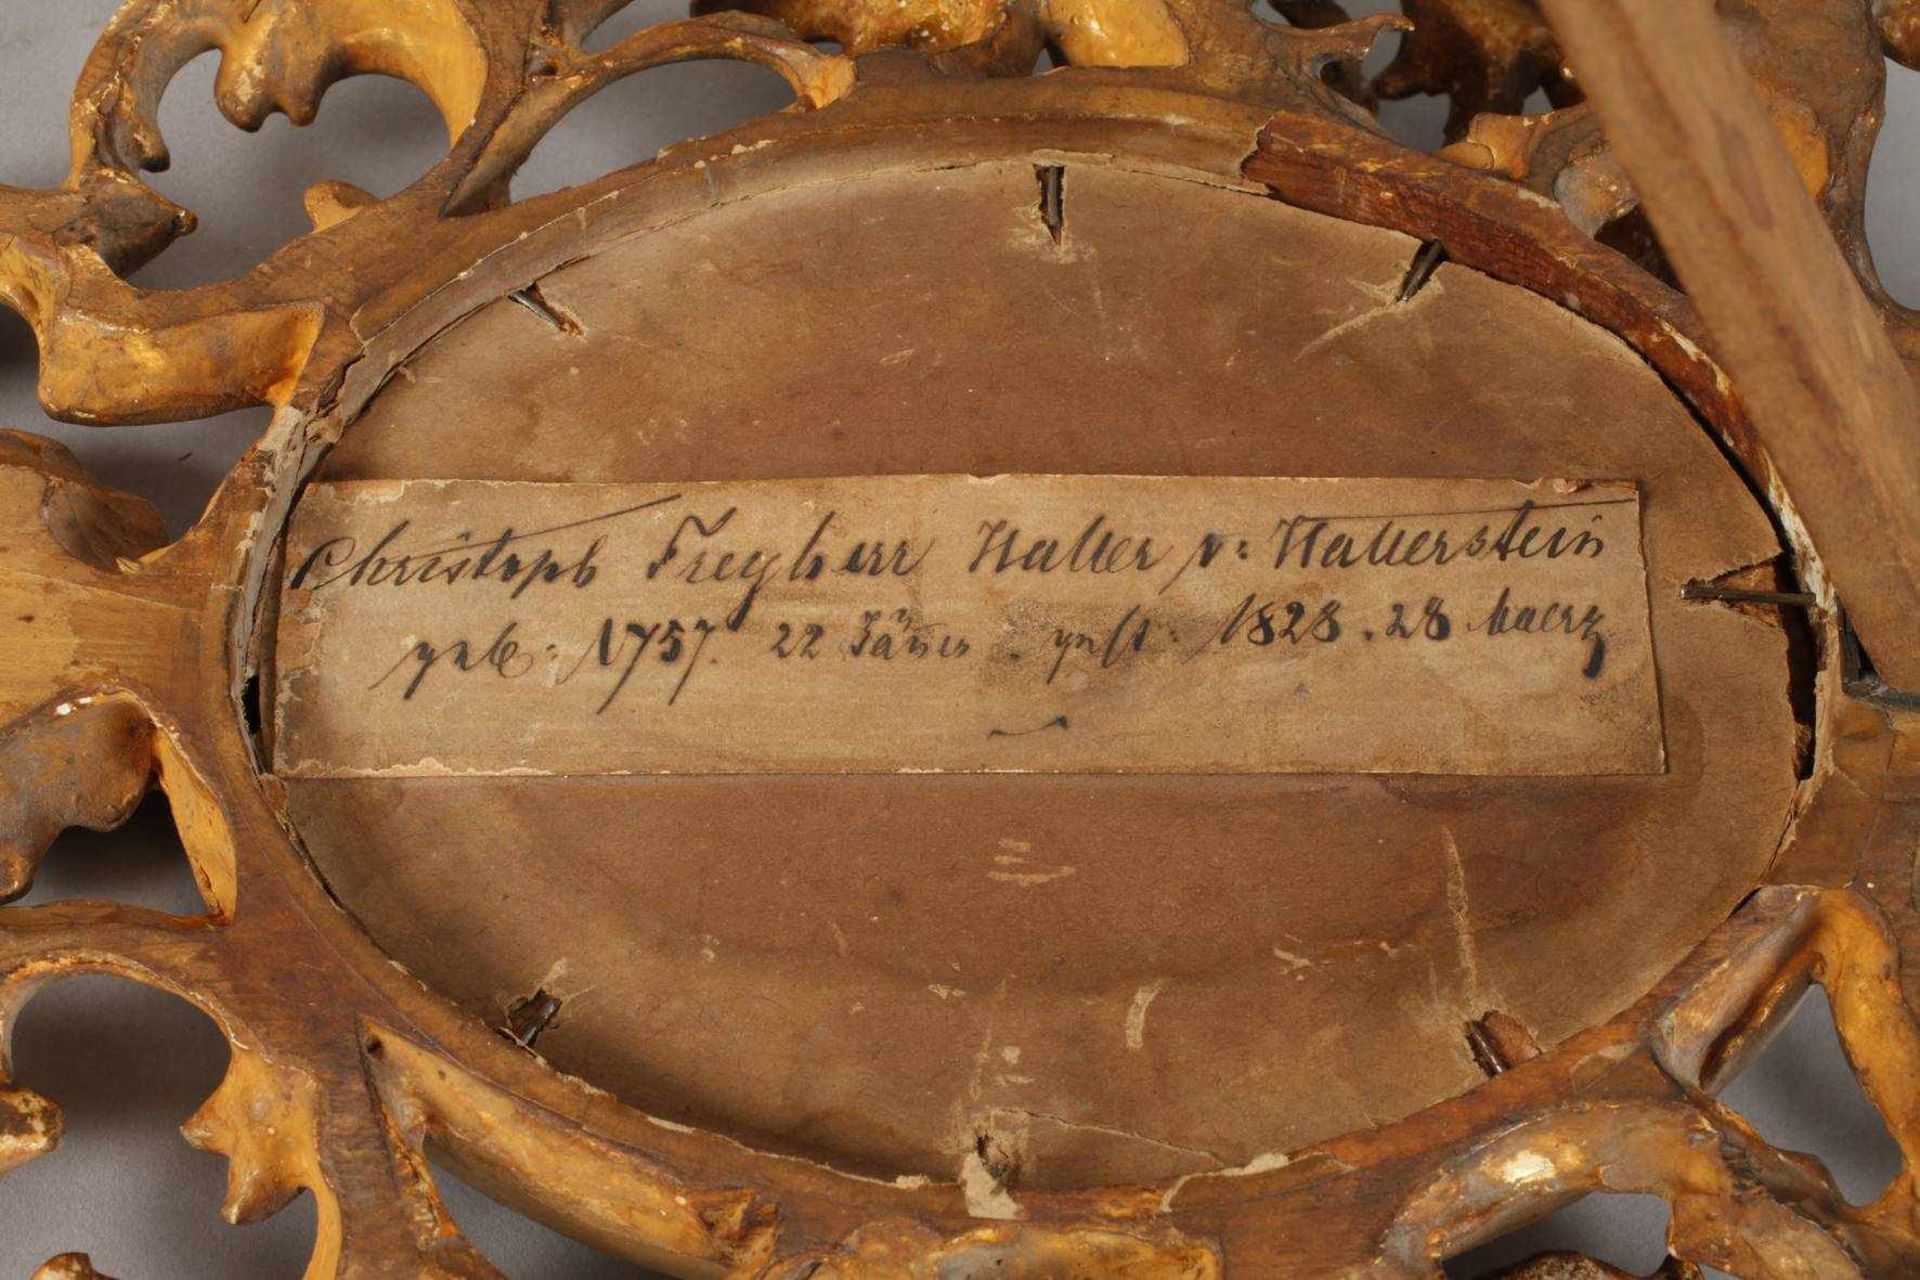 Christoph Freyherr Haller v: Hallerstein
geb: 1757. 22 Jäner. gest: 1828. 28 Maerz